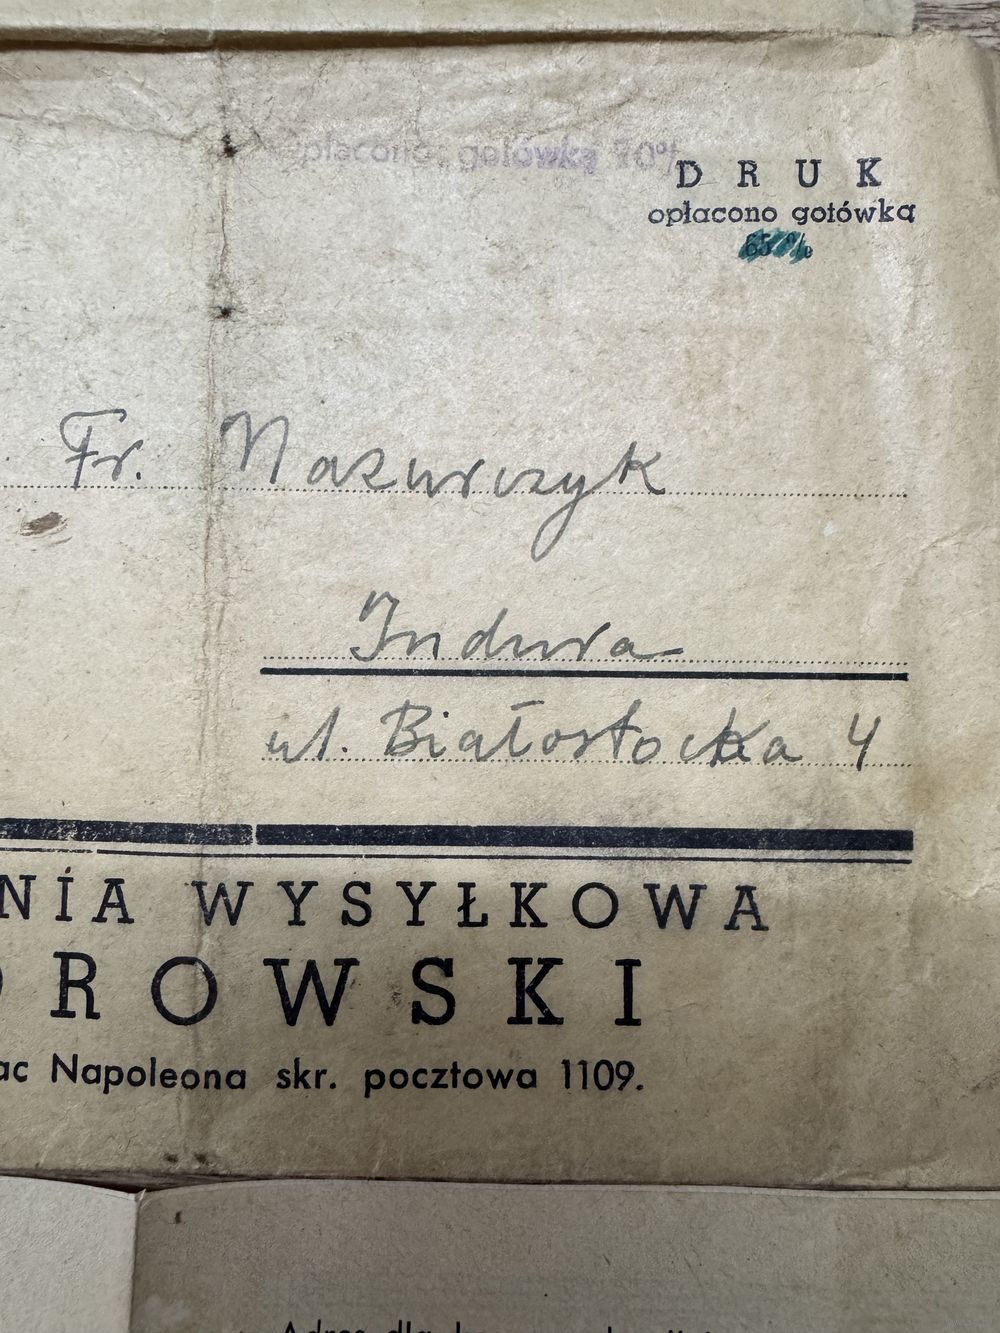 opłacono gotówką 70%
D R U K
opłacono gotówką
65 %
Fr. Mazurczyk
Indura
ul. Białostocka 4
NIA WYSYŁKOWA
ROWSKI
ac Napoleona skr. pocztowa 1109.